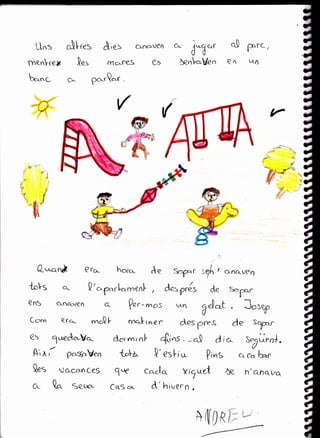 Uns altres dies anaven a jugar al parc,
mentres les mares es sentaven en un
banc a parlar.
Quant era hora de sopar sen' anaven
tots a l'apartament, després de sopar
ens anaven a fer-mos un gelat. Josep
com era molt matiner despres de sopar
es quedava dormint afins al dia següent.
Aixi passaven tots l'estiu fins acabar
les vacances que cada xiquet se n'anava
a la seva casa d'hivern.
ANDREU